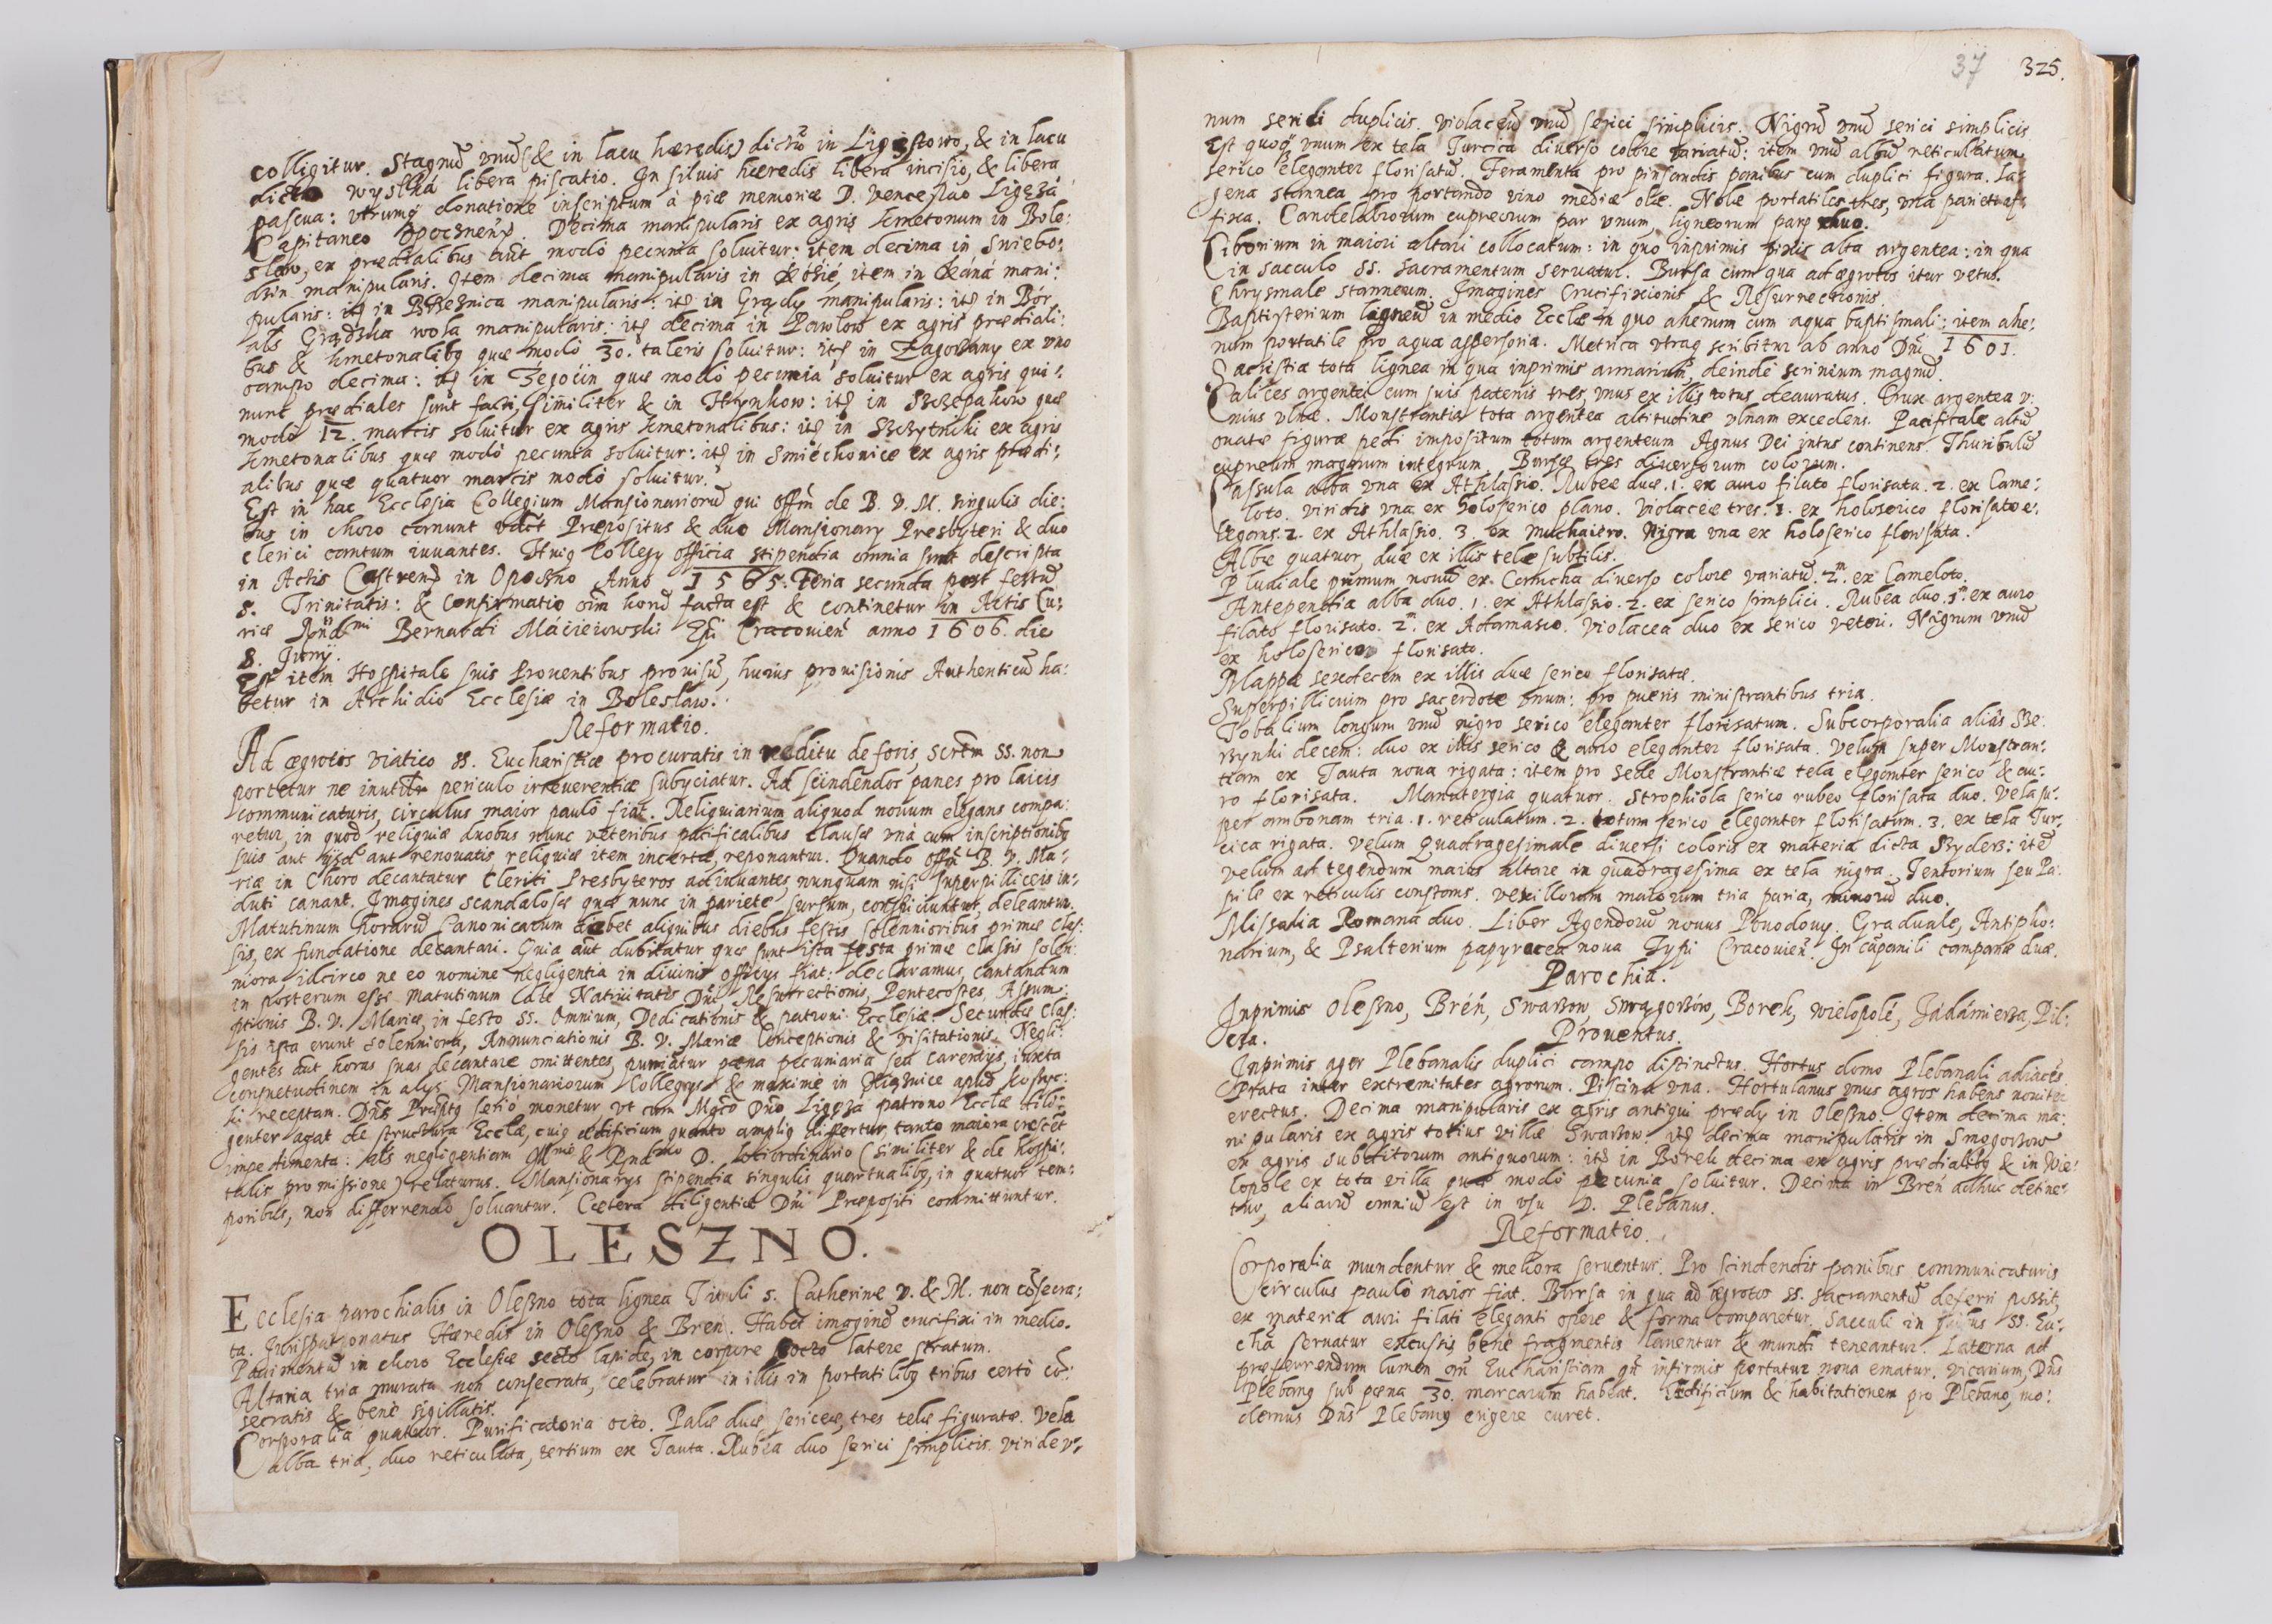 colligitur. Stagnũ vnũ (& in lacu hæredis) dictũ in Ligęstowo, & in lacu
dicto wysłka libera piscatio. In siluis hæredis libera incisio, & libera
pascua: vtrumq; donatione inscriptum à piæ memoriæ D. Venceslao Ligęzá
Capitaneo Opocznen̄. Decima manipularis ex agris kmetonum in Bole:
slaw, ex prædialibus aũt modò pecunia soluitur: item decima in Swiebo:
dzin manipularis. Item decima manipularis in item in mani:
pularis: itẽ in Brzeznica manipularis: itẽ in Grądy manipularis: itẽ in Bór
als Grądzka wola manipularis: itẽ decima in Pawlow ex agris prædiali:
bus & kmetonalibq quæ modò 30. taleris soluitur: itẽ in Zagorzany ex vno
campo decima: itẽ in Zegocin quæ modò pecunia soluitur ex agris qui
nunc prædiales sunt facti, similiter & in Hrynkow: itẽ in Szczepanow quæ
modò 12. marcis soluitur ex agris kmetonalibus: itẽ in Szczytniki ex agris
kmetonalibus quæ modò pecunia soluitur: itẽ in Smiéchowice ex agris prædi:
alibus quæ quatuor marcis modò soluitur.
Est in hac Ecclesia Collegium Mansionariorũ qui offm̃ de B. V. M. singulis die:
bus in choro canunt Præpositus & duo Mansionarij Presbyteri & duo
clerici cantum iuuantes. Huiq Collegij officia stipendia omnia sunt descripta
in Actis Castren̄ in Opoczno Anno 1565. Feria secunda post festũ
S. Trinitatis: & Confirmatio oĩm horũ facta est & continetur in Actis Cu:
riæ Rñdmi Bernardi Máciéiowski Eṗi Cracouien̄ anno 1606. die
8. Junij.
Est item Hospitale suis Prouentibus prouisũ, huius prouisionis Authenticũ ha:
betur in Archidio Ecclesiæ in Boleslaw.
Reformatio.
Ad ægrotos viatico SS. Eucharistiæ procuratis in redditu de foris, Scrm̃ SS. non
portetur ne inutilr periculo irreuerentiæ subyciatur. Ad scindendos panes pro laicis
communicaturis, circulus maior paulò fiat. Reliquiarium aliquod nouum elegans compa:
retur, in quod reliquiæ duobus nunc veteribus pacificalibus clausæ vnà cum inscriptionibq
suis aut ijsd aut renouatis, reliquiæ item incertæ, reponantur. Quando offm̃ B. V. Ma:
riæ in Choro decantatur Clerici Presbyteros adiuuantes, nunquam nisi superpilliceis in:
duti canant. Imagines scandalosæ quæ nunc in pariete sursum, conspiciuntur, deleantur.
Matutinum horarũ Canonicarum debet aliquibus diebus festis solennioribus primæ clas:
sis, ex fundatione decantari. Quia aũt dubitatur quæ sunt ista festa primæ classis solen:
niora, idcirco ne eo nomine negligentia in diuinis officijs fiat: declaramus, cantandum
in posterum esse Matutinum Natiuitatis Dñi Resurrectionis, Pentecostes, Assum:
ptionis B. V. Mariæ, in festo SS. Omnium, Dedicationis & patroni Ecclesiæ. Secundæ clas:
sis ista erunt solenniora, Annunciationis B. V. Mariæ Conceptionis & visitationis. Negli:
gentes aũt horas suas decantare omittentes, puniatur pæna pecuniaria seu carendijs, iuxta
consuetudinem in alijs Mansionariorum Collegijs & maxime in Xiąznice apud
receptam. Dñs Præpts seriò monetur vt cum Mgco Dño Ligęza patrono Ecclæ dili:
genter agat de structura Ecclæ, cuiq ædificium quanto ampliq differtur, tanto maiora crescet
impedimenta: als negligentiam Illmo & Rndmo D. Lociordinario (similiter & de hospi:
talis promissione) relaturus. Mansionarijs stipendia singulis quartualibq, in quatuor tem:
poribus, non differendo soluantur. Cætera diligentiæ Dñi Præpositi committuntur.
OLESZNO.
Ecclesia parochialis in Oleßno tota lignea Tituli S. Catherinæ V. & M. non cõsecra:
ta. Iurispatronatus Hæredis in Oleßno & Bren. Habet imaginẽ crucifixi in medio.
Pauimentũ in choro Ecclesiæ secto lapide, in corpore cocto latere stratum.
Altaria tria murata non consecrata, celebratur in illis in portatilibq tribus certò cõ:
secratis & benè sigillatis.
Corporalia quatuor. Purificatoria octo. Palæ duæ sericeæ, tres telæ figuratæ. Vela
alba tria, duo reticulata, tertium ex Tauta. Rubea duo serici simplicis. viride v:
37 325.
num serici duplicis. violaceũ vnũ serici simplicis. Nigrũ vnũ serici simplicis
Est quoq; vnum ex tela Turcica diuerso colore variatũ: item vnũ albũ reticulatum
serico eleganter florisatũ. Feramenta pro pinsandis panibus cum duplici figura. La:
gena stannea pro portando vino mediæ ollæ. Nolæ portatiles tres, vna parieti af:
fixa. Candelabrorum cupreorum par vnum, ligneorum paria duo.
Ciborium in maiori altari collocatum: in quo inprimis pixis alta argentea: in qua
in sacculo SS. Sacramentum seruatur. Bursa cum qua ad ægrotos itur vetus.
Chrysmale stanneum. Imagines Crucifixionis & Resurrectionis.
Baptisterium ligneũ in medio Ecclæ in quo ahenum cum aqua baptismali: item ahe:
num portatile pro aqua aspersoria. Metrica vtraq scribitur ab anno Dñi 1601.
Sacristia tota lignea in qua inprimis armariũ, deinde scrinium magnũ.
Calices argentei cum suis patenis tres, vnus ex illis totus deauratus. Crux argentea v:
nius vlnæ. Monstrantia tota argentea altitudine vlnam excedens. Pacificale altũ
ouatæ figuræ pedi impositum totum argenteum Agnus Dei intus continens. Thuribulũ
cupreum magnum integrum. Bursæ tres diuersorum colorum.
Cassula alba vna ex Athlassio. Rubeæ duæ. 1. ex auro filato florisata. 2. ex Came:
loto. viridis vna ex holoserico plano. Violaceæ tres. 1. ex holoserico florisato e:
legans. 2. ex Athlassio. 3. ex Muchaiero. Nigra vna ex holoserico florisata.
Albæ quatuor, duæ ex illis telæ subtilis.
Pluuiale primum nouũ ex Camcha diuerso colore variatũ. 2m. ex Cameloto.
Antependia alba duo. 1. ex Athlassio. 2. ex serico simplici. Rubea duo. 1m. ex auro
filato florisato. 2m. ex Adamasco. Violacea duo ex serico veteri. Nigrum vnũ
ex holoserico florisato.
Mappæ sexdecem ex illis duæ serico florisatæ.
Superpillicium pro sacerdote vnum: pro pueris ministrantibus tria.
Tobalium longum vnũ nigro serico eleganter florisatum. Subcorporalia aliàs Sze:
rzynki decem: duo ex illis serico & auro eleganter florisata. Velum super Monstran:
tiam ex Tauta noua rigata: item pro sede Monstrantiæ tela eleganter serico & au:
ro florisata. Manutergia quatuor. Strophiola serico rubeo florisata duo. Vela su:
per ambonam tria. 1. reticulatum. 2. serico eleganter florisatum. 3. ex tela Tur:
cica rigata. Velum Quadragesimale diuersi coloris ex materia dicta Szyderz: itẽ
velum ad tegendum maius altare in quadragesima ex tela nigra. Tentorium seu Pa:
pile ex reticulis constans. Vexillorum maiorum tria paria, minorũ duo.
Missalia Romana duo. Liber Agendorũ nouus Powodowij. Graduale, Antipho:
narium, & Psalterium papyracea noua Typi Cracouien̄. In cãpanili campanæ duæ.
Parochia.
Inprimis Oleßno, Brén, Swarzow, Smągorzów, Borek, wielopolé, Jádámierza, Pil:
cza.
Prouentus.
Inprimis ager Plebanalis duplici campo distinctus. Hortus domo Plebanali adiacẽs.
Prata inter extremitates agrorum. Piscina vna. Hortulanus vnus agros habens nouiter
erectus. Decima manipularis ex agris antiqui prædij in Oleßno. Item decima ma:
nipularis ex agris totius villæ Swarzow. itẽ decima manipularis in Smogorzow
ex agris subditorum antiquorum: itẽ in Borek decima ex agris prædialibq & in Wie:
lopole ex tota villa quæ modò pecunia soluitur. Decima in Bren adhuc detine:
tur, aliarũ omniũ est in vsu D. Plebanus.
Reformatio.
Corporalia mundentur & meliora seruentur. Pro scindendis panibus communicaturis
circulus paulò maior fiat. Bursa in qua ad ægrotos SS. Sacramentũ deferri possit,
ex materia auri filati eleganti opere & forma comparetur. Sacculi in quibus SS. Eu:
cha seruatur excussis benè fragmentis lauentur & mundi teneantur. Laterna ad
præferendum lumen Eucharistiam qñ infirmis portatur noua ematur. Vicarium, Dñs
Plebanq sub pæna 30. marcarum habeat. Ædificium & habitationem pro Plebano, mo:
dernus Dñs Plebanq erigere curet.